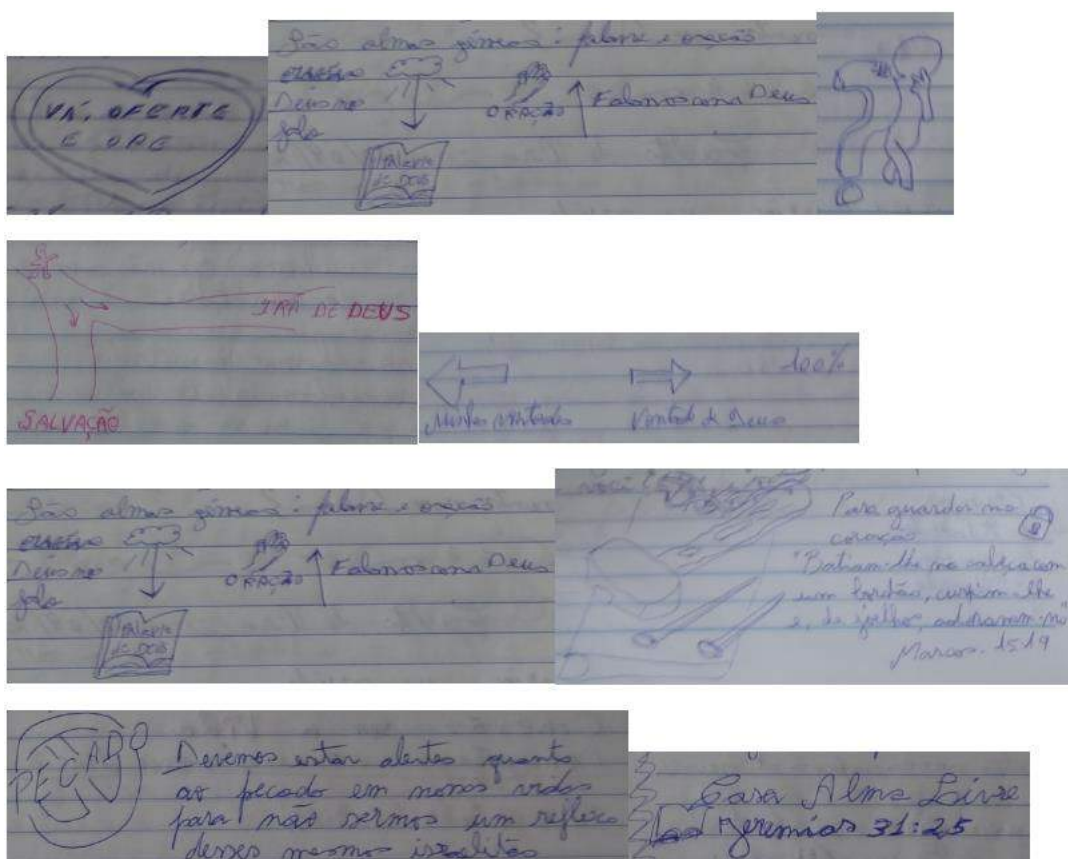 VÁ, OFERTE
E ORE
São almas gêmeas: palavra e oração
Deus nos
fala
ORAÇÃO
Falamos com a Deus
Palavra
de DEUS
IRA DE DEUS
SALVAÇÃO
100%
Minhas vontades
Vontade de Deus
São almas gêmeas: palavra e oração
Deus nos
fala
ORAÇÃO
Falamos com a Deus
Palavra
de DEUS
Para guardar no
coração
"Batiam-lhe na cabeça com
um bordão, cuspiam-lhe
e, de joelhos, adoravam-no"
Marcos. 15:19
PECADO
Devemos estar alertas quanto
ao pecado em nossas vidas
para não sermos um reflexo
desses mesmos israelitas
Casa Alma Livre
Jeremias 31:25